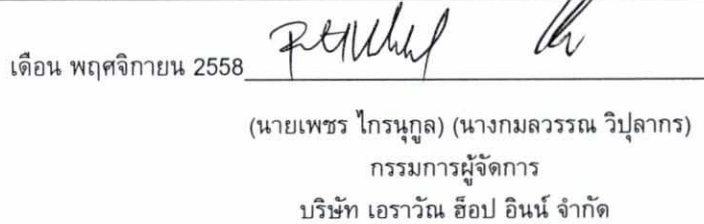 เดือน พฤศจิกายน 2558
(นายเพชร ไกรนุกูล) (นางกมลวรรณ วิปุลากร)
กรรมการผู้จัดการ
บริษัท เอราวัณ ฮ็อป อินน์ จำกัด